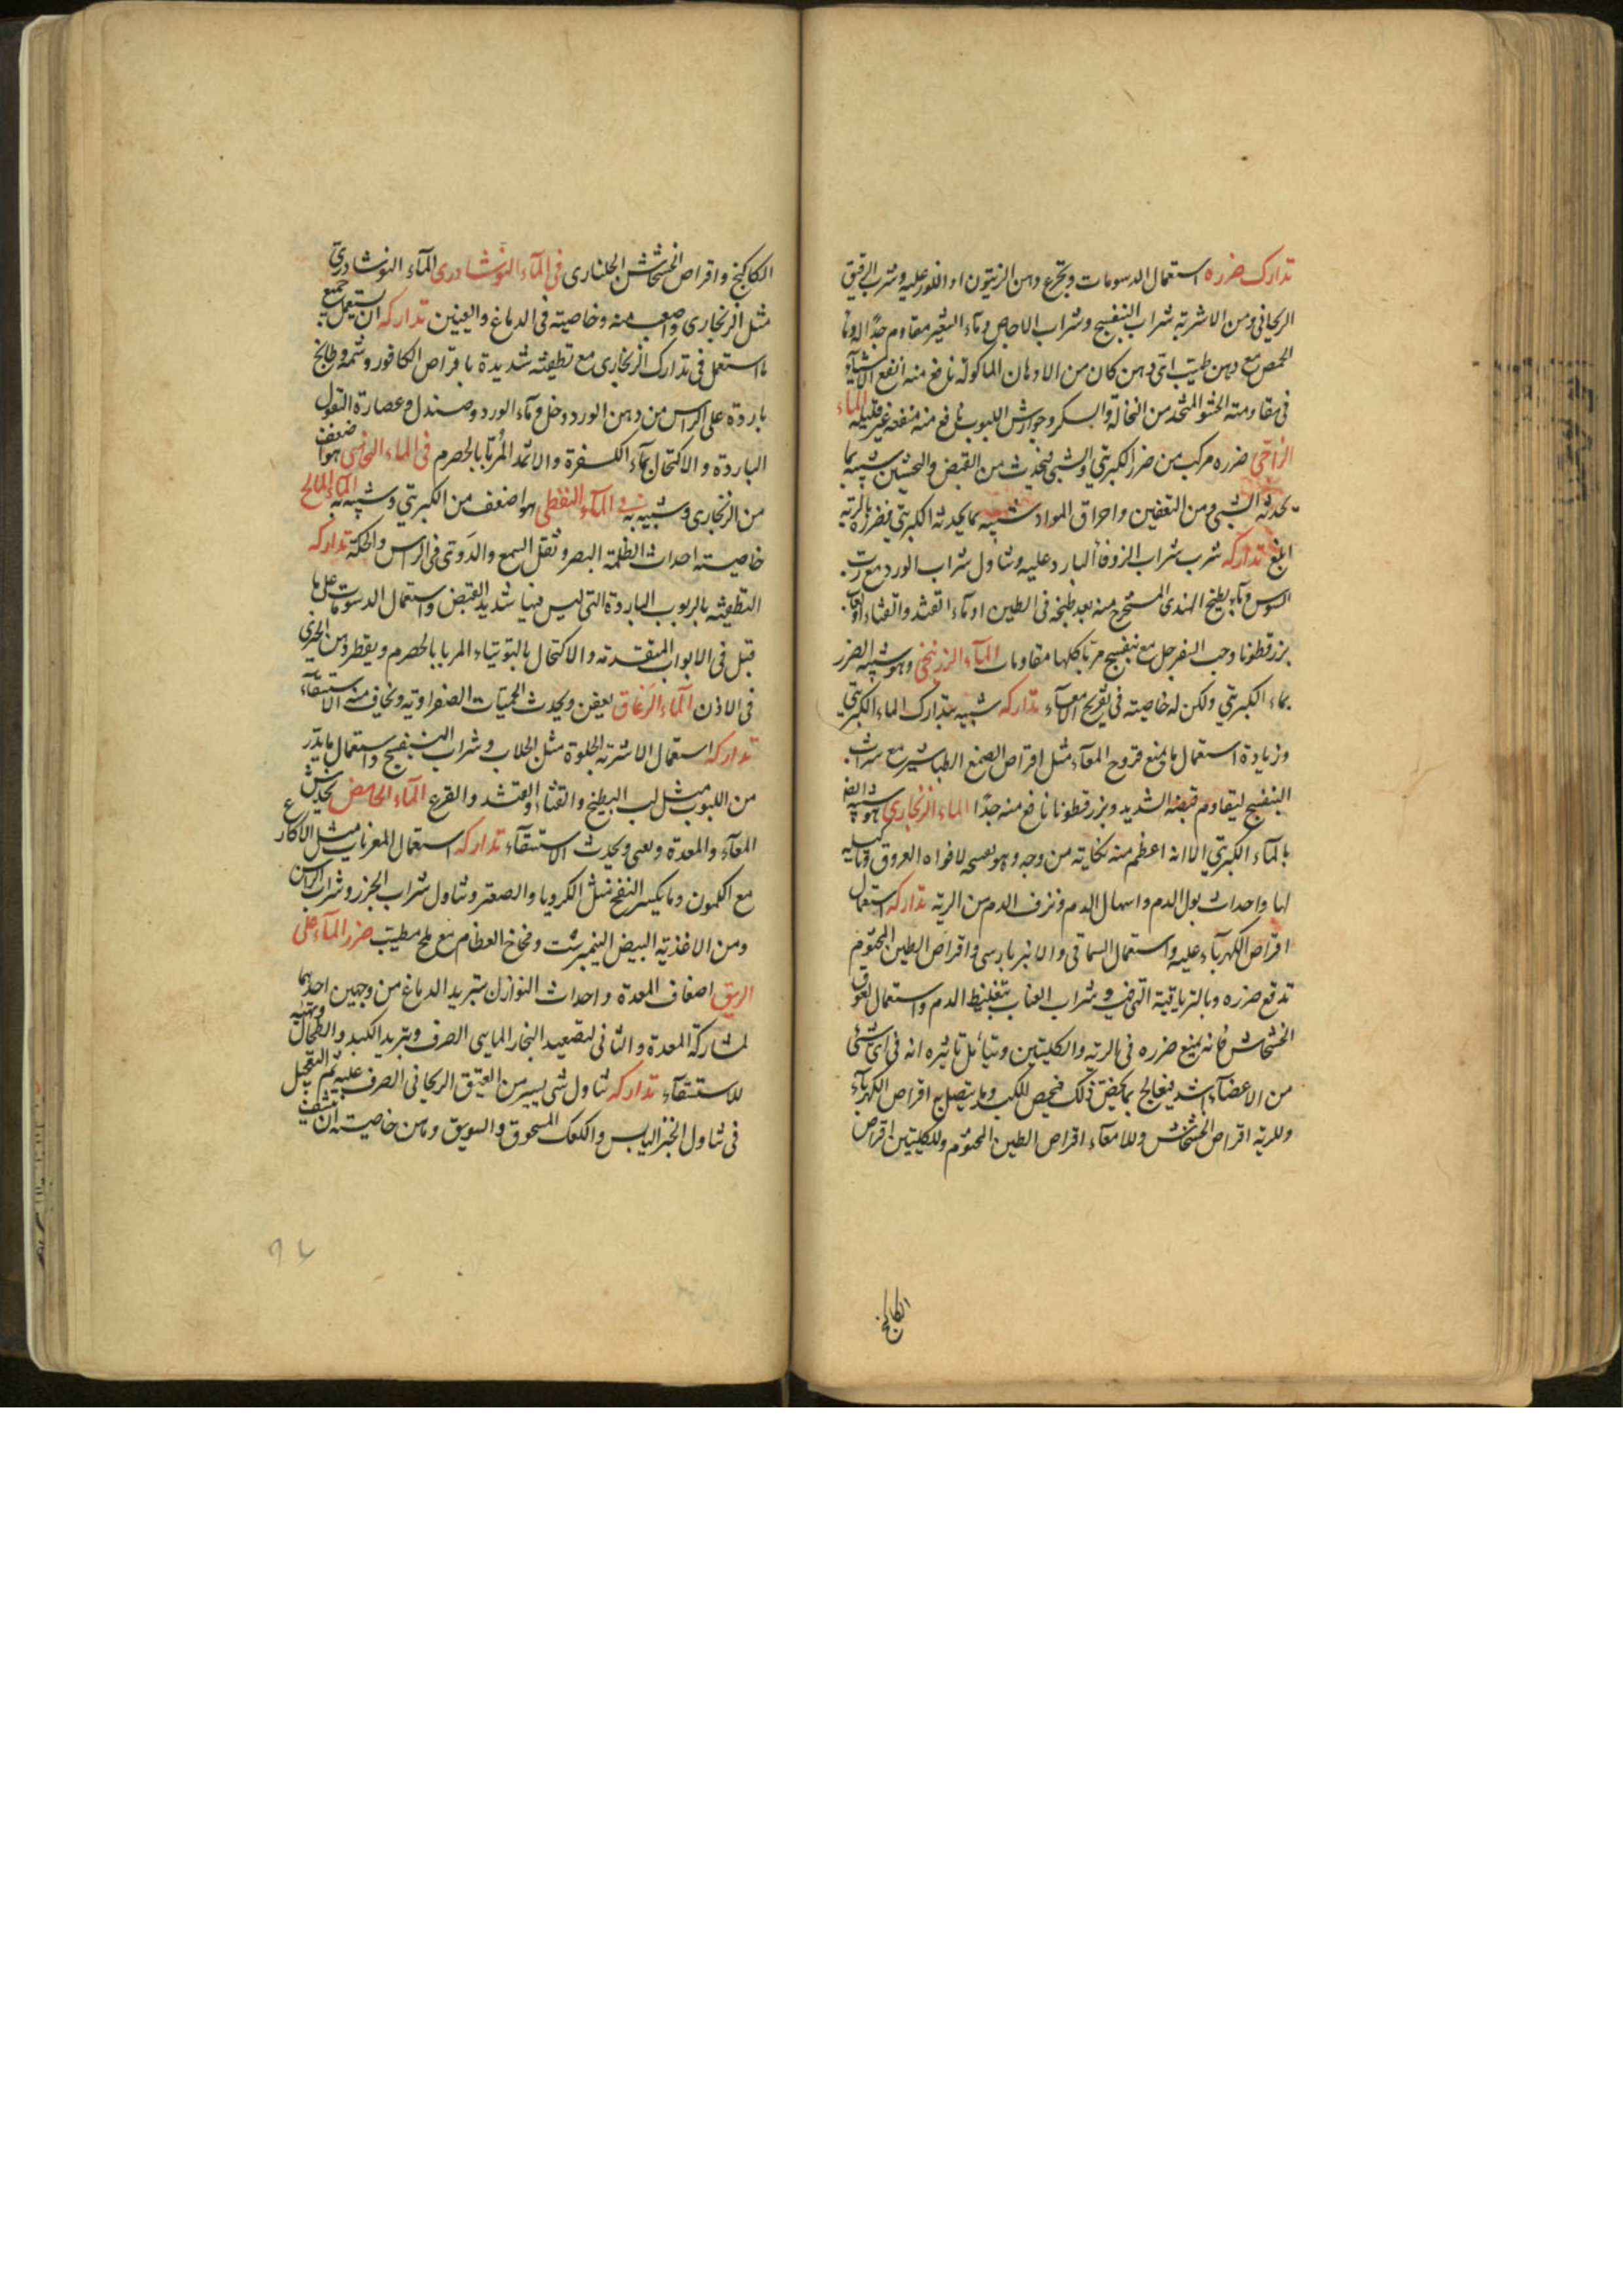 تدارك ضرره استعمال الدسومات وتجرع دهن الزيتون او اللوز عليه وشرب الرقيق
الريحانى ومن الاشربة شراب البنفسج وشراب الاجاص وماء الشعير مقاوم جدا
الحمص مع دهن طيب اى دهن كان من الادهان الماكولة نافع منه انفع الاشياء
فى مقاومته الحشو المتخذ من النخالة والسكر وجوارش اللبوب نافع منه منفعة غير قليلة الماء
الزاجى ضرره مركب من ضرر الكبريتى والشبى فيحدث من القبض والتخشين شبيه بما
يحدثه الشبى ومن التعفين واحراق المواد شبيه بما يحدثه الكبريتى فيضرره بالرية
ابلغ تداركه شرب شراب الزوفا البارد عليه وتناول شراب الورد مع رب
السوس وماء بطيخ الهندى المستخرج منه بعد طبخه فى الطين او ماء القثد والقثاء
بزرقطونا وحب السفرجل مع بنفسج مربا كلها مقاومات الماء الزرنيخى وهو شبيه الضرر
بماء الكبريتى ولكن له خاصيته فى تقريح الامعاء تداركه شبيه بتدارك الماء الكبريتى
وزيادة استعمال ما يمنع قروح المعاء مثل اقراص الصمغ الطباشير مع شراب
البنفسج ليقاوم قبضه الشديد وبزرقطونا نافع منه جدا الماء الزنجارى هو شبيه
بالماء الكبريتى الا انه اعظم منه نكاية من وجه وهو لافواه العروق
لها واحداث بول الدم واسهال الدم ونزف الدم من الرية تداركه استعمال
اقراص الكهرباء عليه واستعمال السماقى والانبرباريسى واقراص الطين المختوم
تدفع ضرره وبالترياقية التى فيه وشراب العناب بتغليظ الدم واستعمال لعوق
الخشخاش فانه يمنع ضرره فى الرية والكليتين ويتامل تاثيره انه فى اى شئ
من الاعضاء اشد فيعالج بما يخص ذلك فيخص للكبد وما يتصل به اقراص الكهرباء
وللرية اقراص الخشخاش وللامعاء اقراص الطين المختوم وللكليتين اقراص
الكاكنج
الكاكنج واقراص الخشخاش الجلنارى فى الماء النوشادرى الماء النوشادرى
مثل الزنجارى واصعب منه وخاصيته فى الدماغ والعينين تداركه ان يستعمل جميع
ما استعمل فى تدارك الزنجارى مع تطفئة شديدة باقراص الكافور وشمه
باردة على الراس من دهن الورد وخل وماء الورد وصندل وعصارة البقول
الباردة والاكتحال بماء الكسفرة والاثمد المربا بالحصرم فى الماء النحاسى هو اضعف
من الزنجارى وشبيه به فى الماء النفطى هو اضعف من الكبريتى وشبيه به الماء المالح
خاصيته احداث الظلمة البصر وثقل السمع والدوى فى الراس والحكة تداركه
التطفئة بالربوب الباردة التى ليس فيها شديد القبض واستعمال الدسومات على ما
قيل فى الابواب المتقدمة والاكتحال بالتوتياء المربا بالحصرم ويقطر دهن الخيرى
فى الاذن الماء الزعاق يعفن ويحدث الحميات الصفراوية ويخاف منه الاستسقاء
تداركه استعمال الاشربة الحلوة مثل الجلاب وشراب البنفسج واستعمال ما يدر
من اللبوب مثل لب البطيخ والقثاء والقثد والقرع الماء الحامض يخدش
المعاء والمعدة ويحدث الاستسقاء تداركه استعمال المغريات مثل الاكارع
مع الكمون وما يكسر النفخ مثل الكرويا والصعتر وتناول شراب الجزر وشراب الراسن
ومن الاغذية البيض النيمبرشت ومخاخ العظام مع ملح مطيب ضرر الماء على
الريق اضعاف المعدة واحداث النوازل بتبريد الدماغ من وجهين احدهما
لمشاركة المعدة والثانى لتصعيد البخار المايى الصرف وتبريد الكبد والطحال وتهيئه
للاستسقاء تداركه تناول شى يسير من العتيق الريحانى الصرف عليه ثم التعجيل
فى تناول الخبز اليابس والكعك المسحوق والسويق وما من خاصيته ان ينشف